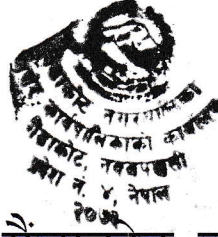 नगरपालिका
कार्यपालिकाको कार्यालय
गैंडाकोट, नवलपरासी
प्रदेश नं. ४, नेपाल
२०७३